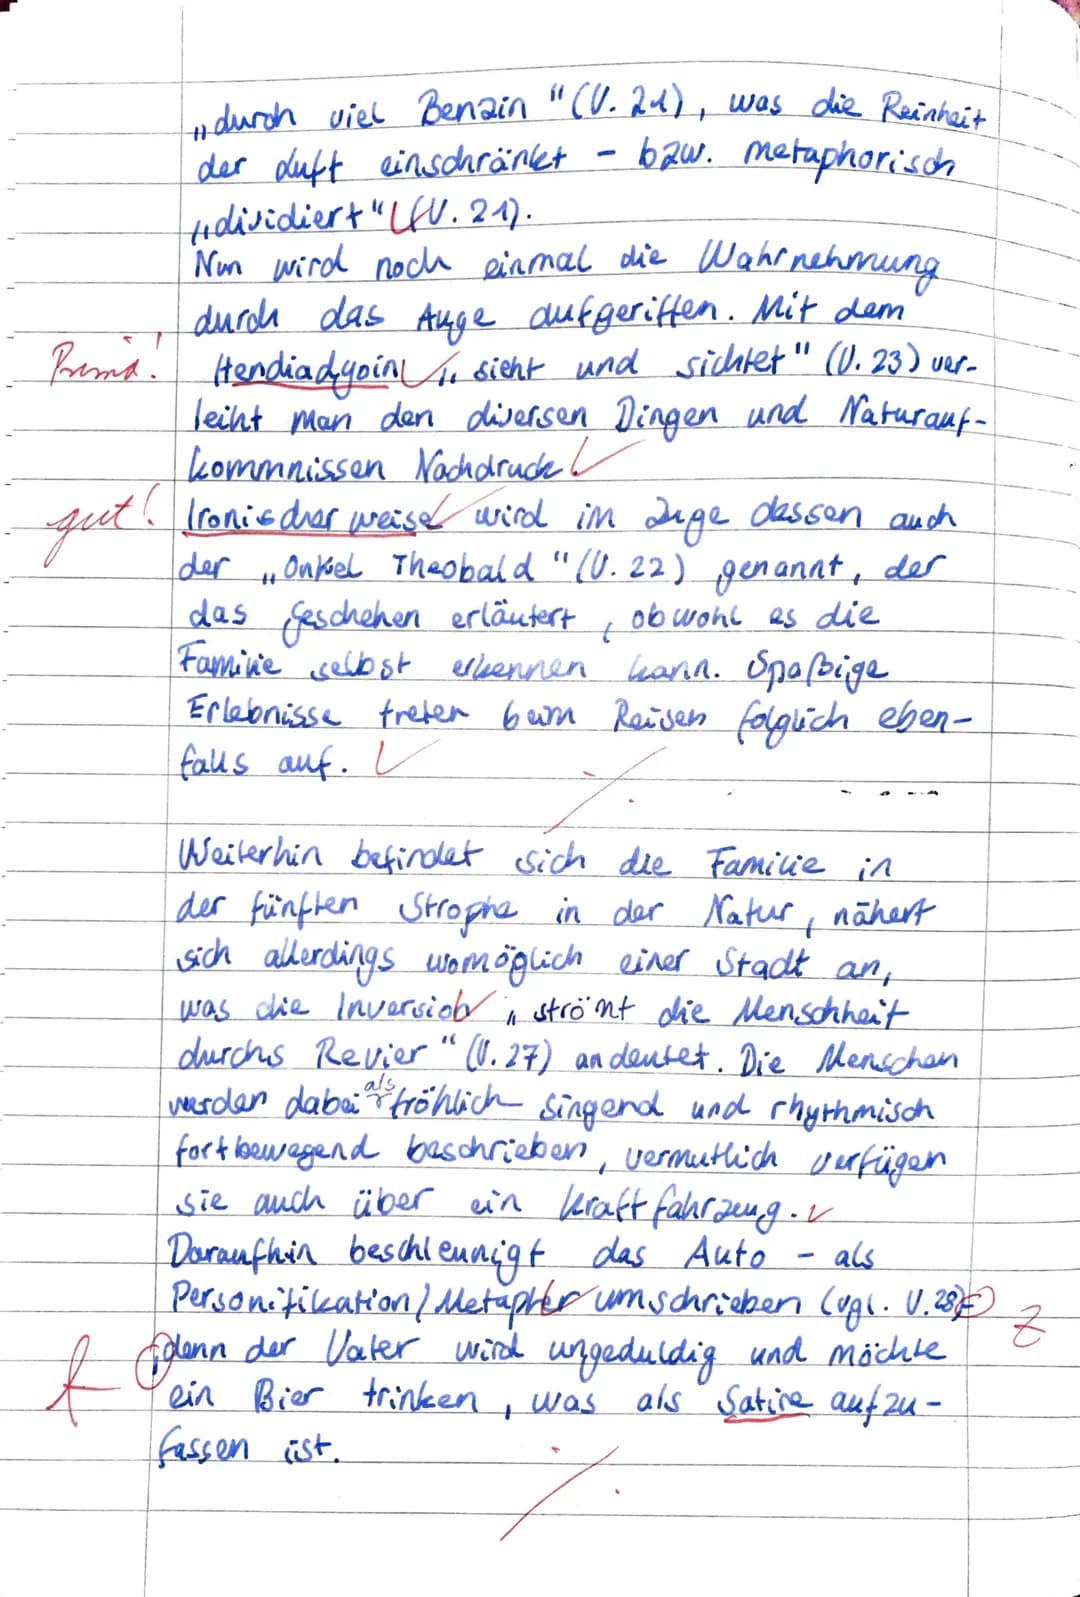 „durch viel Benzin" (V. 21), was die Reinheit
der Luft einschränkt - bzw. metaphorisch
„dividiert" (V. 21).
Nun wird noch einmal die Wahrnehmung
durch das Auge aufgeriffen. Mit dem
Prima! Hendiadyoin „sieht und sichtet" (V. 23) ver-
leiht man den diversen Dingen und Naturauf-
kommnissen Nachdruck.
gut! Ironischer weise wird im Zuge dessen auch
der „Onkel Theobald" (V. 22) genannt, der
das Geschehen erläutert, obwohl es die
Familie selbst erkennen kann. Spaßige
Erlebnisse treten beim Reisen folglich eben-
falls auf.
Weiterhin befindet sich die Familie in
der fünften Strophe in der Natur, nähert
sich allerdings womöglich einer Stadt an,
was die Inversion „strömt die Menschheit
durchs Revier" (V. 27) andeutet. Die Menschen
werden dabei als fröhlich singend und rhythmisch
fortbewegend beschrieben, vermutlich verfügen
sie auch über ein Kraftfahrzeug.
Daraufhin beschleunigt das Auto - als
Personifikation/Metapher umschrieben (vgl. V. 28) - Z
denn der Vater wird ungeduldig und möchte
ein Bier trinken, was als Satire aufzu-
fassen ist.